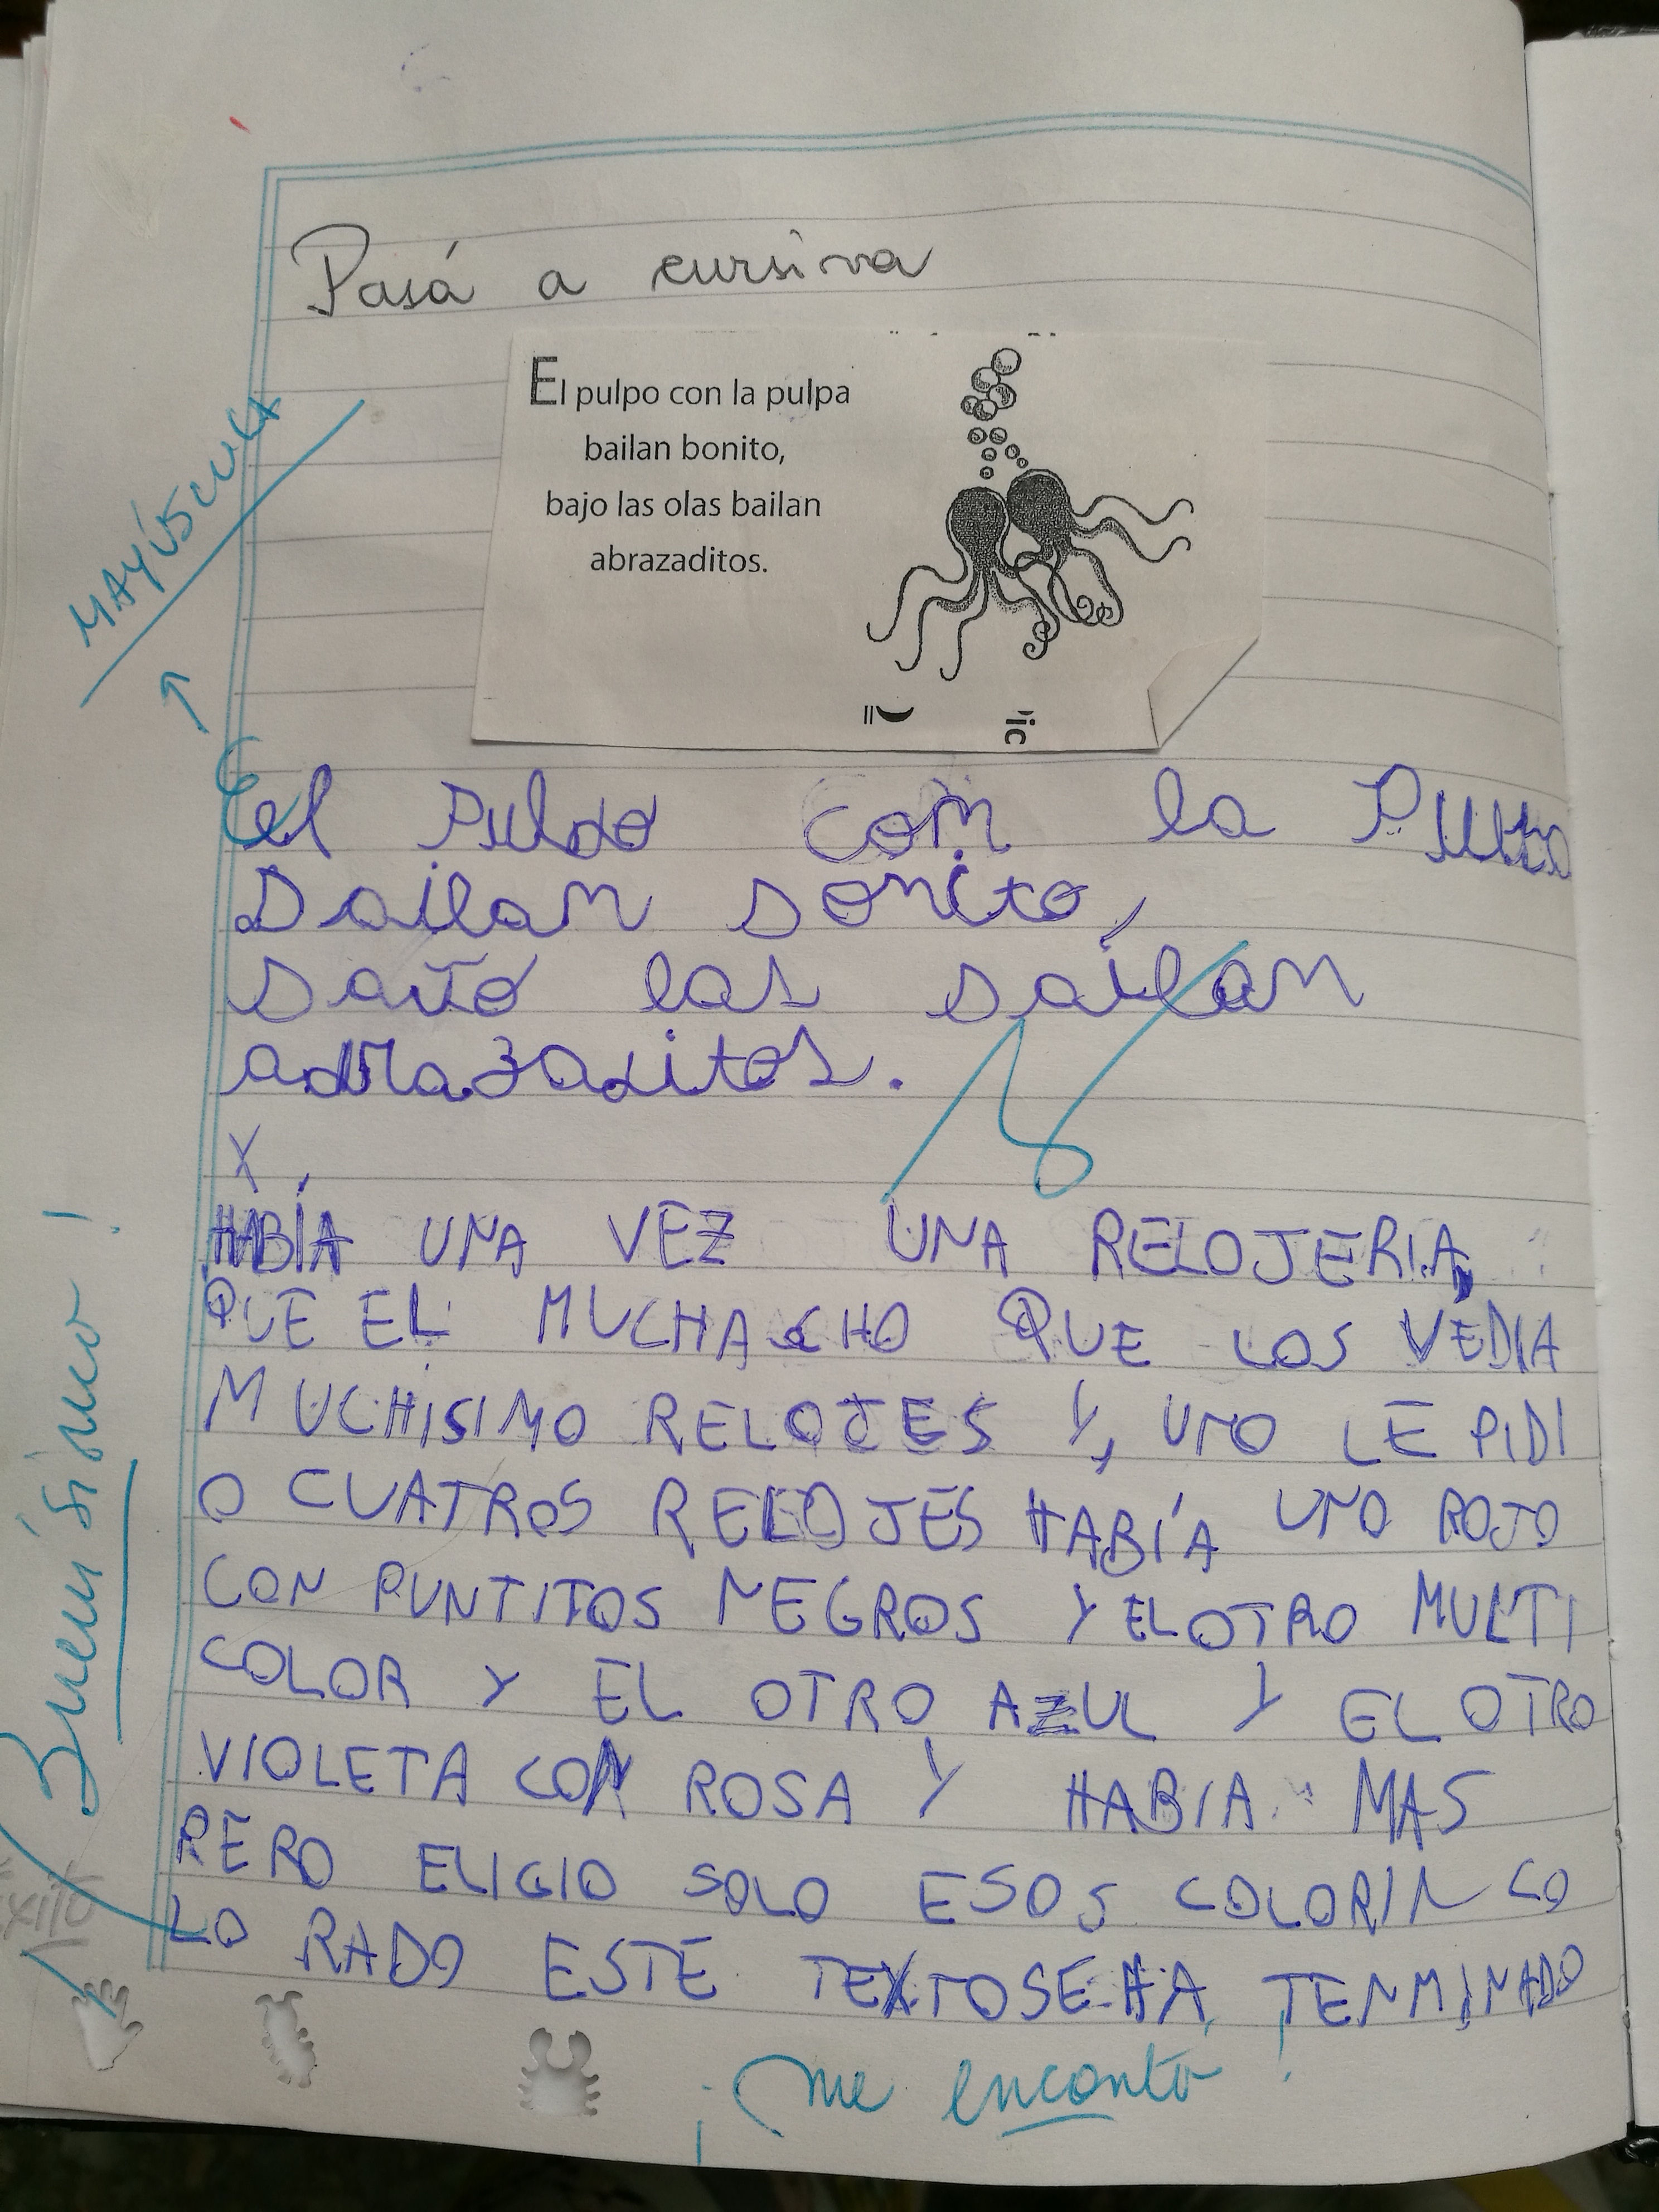 Pasá a cursiva
El pulpo con la pulpa
bailan bonito,
bajo las olas bailan
abrazaditos.
MAYÚSCULA
el Pulpo con la
bailan bonito,
bajo las bailan
abrazaditos.
X
HABÍA UNA VEZ UNA RELOJERIA,
QUE EL MUCHACHO QUE LOS VEDIA
MUCHISIMO RELOJES Y, UNO LE PIDI
O CUATROS RELOJES HABÍA UNO ROJO
CON PUNTITOS NEGROS Y EL OTRO MULTI
COLOR Y EL OTRO AZUL Y EL OTRO
VIOLETA CON ROSA Y HABIA MAS
PERO ELIGIO SOLO ESOS COLORIN CO
LO RADO ESTE TEXTO SE HA TENMINADO
Buenísimo!
¡me encantó!